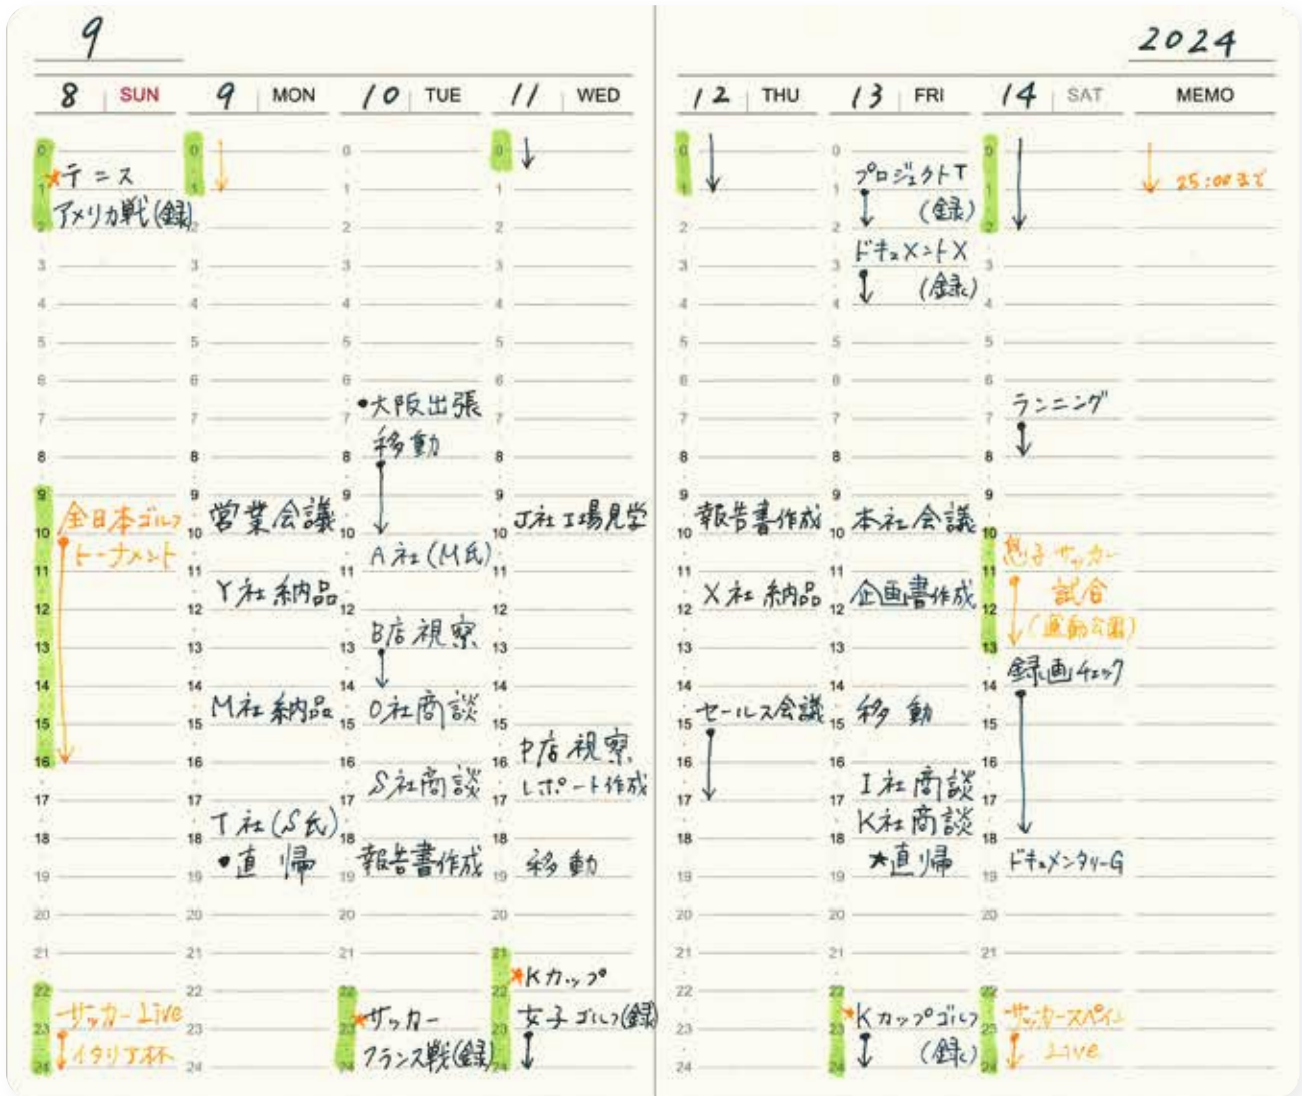 9
2024
8 SUN
9 MON
10 TUE
11 WED
12 THU
13 FRI
14 SAT
MEMO
0
1
2
3
4
5
6
7
8
9
10
11
12
13
14
15
16
17
18
19
20
21
22
23
24
★テニス
アメリカ戦(録)
全日本ゴルフ
トーナメント
サッカーLive
イタリア杯
0
1
2
3
4
5
6
7
8
9
10
11
12
13
14
15
16
17
18
19
20
21
22
23
24
営業会議
Y社納品
M社納品
T社(S氏)
•直帰
0
1
2
3
4
5
6
7
8
9
10
11
12
13
14
15
16
17
18
19
20
21
22
23
24
•大阪出張
移動
A社(M氏)
B店視察
O社商談
S社商談
報告書作成
★サッカー
フランス戦(録)
0
1
2
3
4
5
6
7
8
9
10
11
12
13
14
15
16
17
18
19
20
21
22
23
24
J社工場見学
P店視察
レポート作成
移動
★Kカップ
女子ゴルフ(録)
0
1
2
3
4
5
6
7
8
9
10
11
12
13
14
15
16
17
18
19
20
21
22
23
24
報告書作成
X社納品
セールス会議
0
1
2
3
4
5
6
7
8
9
10
11
12
13
14
15
16
17
18
19
20
21
22
23
24
プロジェクトT
(録)
ドキュメントX
(録)
本社会議
企画書作成
移動
I社商談
K社商談
★直帰
★Kカップゴルフ
(録)
0
1
2
3
4
5
6
7
8
9
10
11
12
13
14
15
16
17
18
19
20
21
22
23
24
ランニング
息子サッカー
試合
(運動公園)
録画チェック
ドキュメンタリーG
サッカースペイン
Live
25:00まで